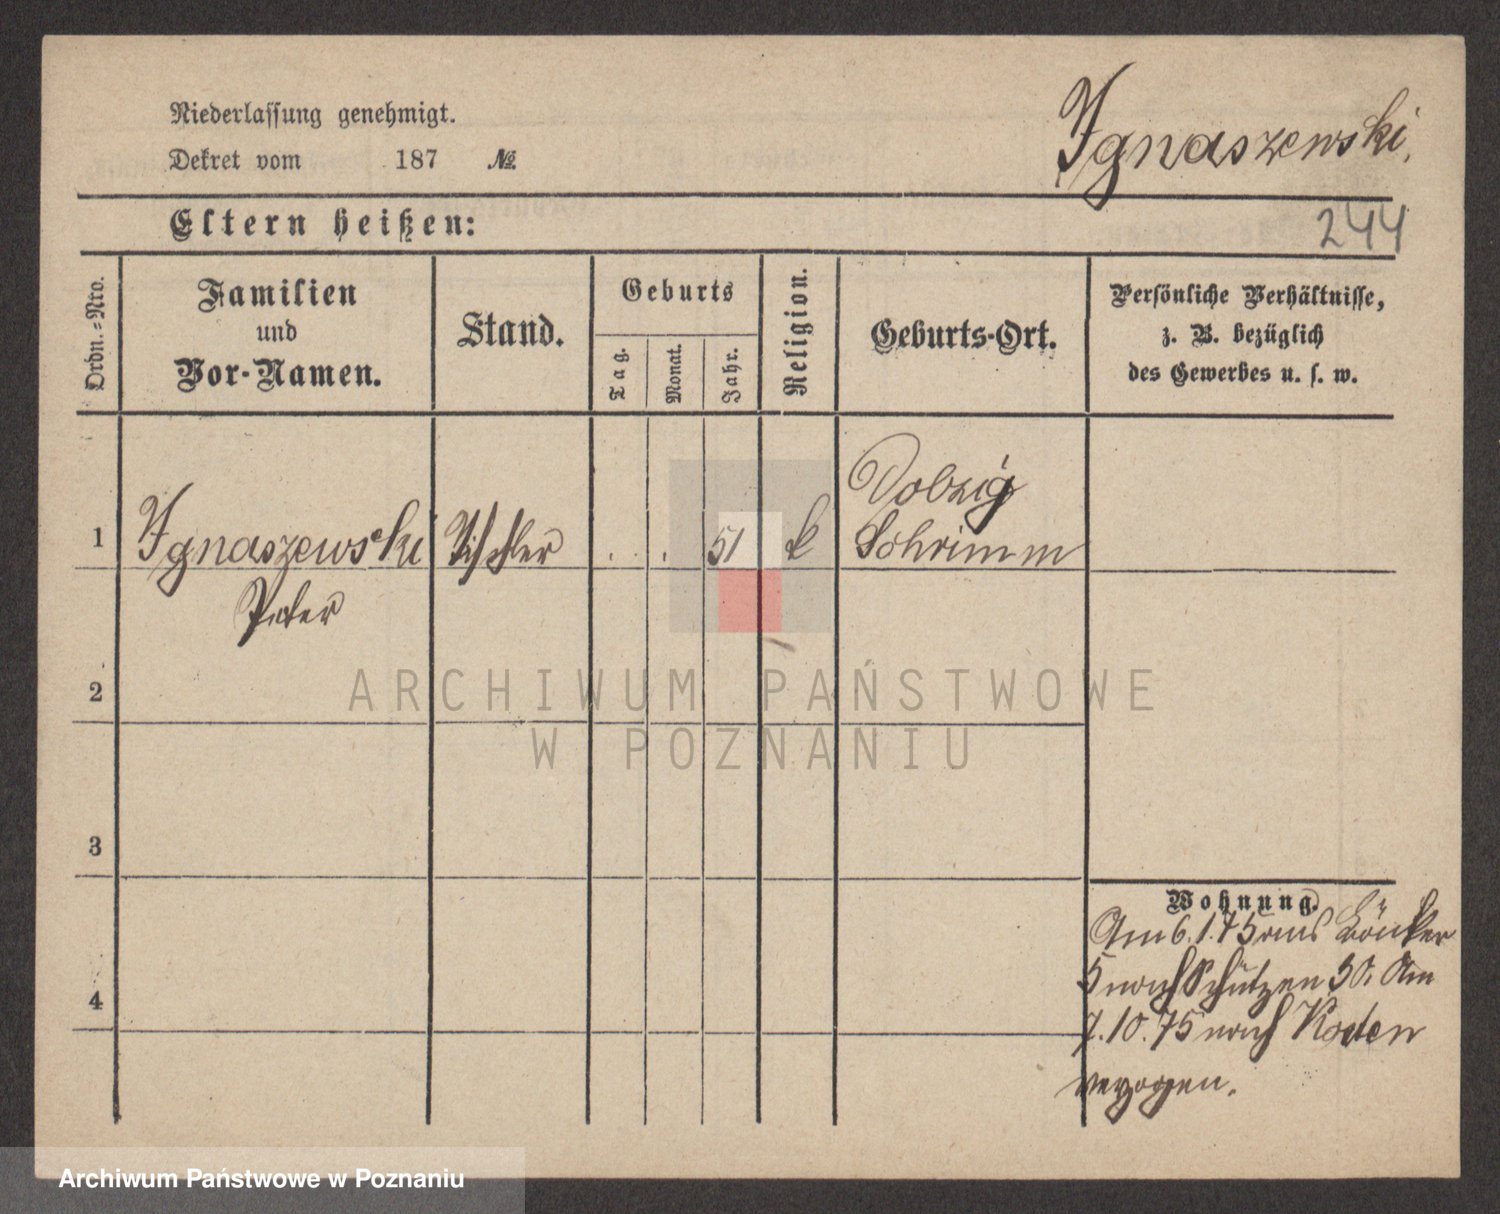 Niederlassung genehmigt.
Dekret vom 187 №
Ignaszewski.
Eltern heißen:
244
Ordn.=Nro.
Familien
und
Vor-Namen.
Stand.
Geburts
Tag.
Monat.
Jahr.
Religion.
Geburts-Ort.
Persönliche Verhältnisse,
z. B. bezüglich
des Gewerbes u. s. w.
1 Ignaszewski Tischler . . 51 k Dolzig
Schrimm
Peter
2
3
4
Wohnung.
Am 6.1.75 aus
5 nach Schützen 30. Am
7.10.75 nach
verzogen.
ARCHIWUM PAŃSTWOWE
W POZNANIU
Archiwum Państwowe w Poznaniu